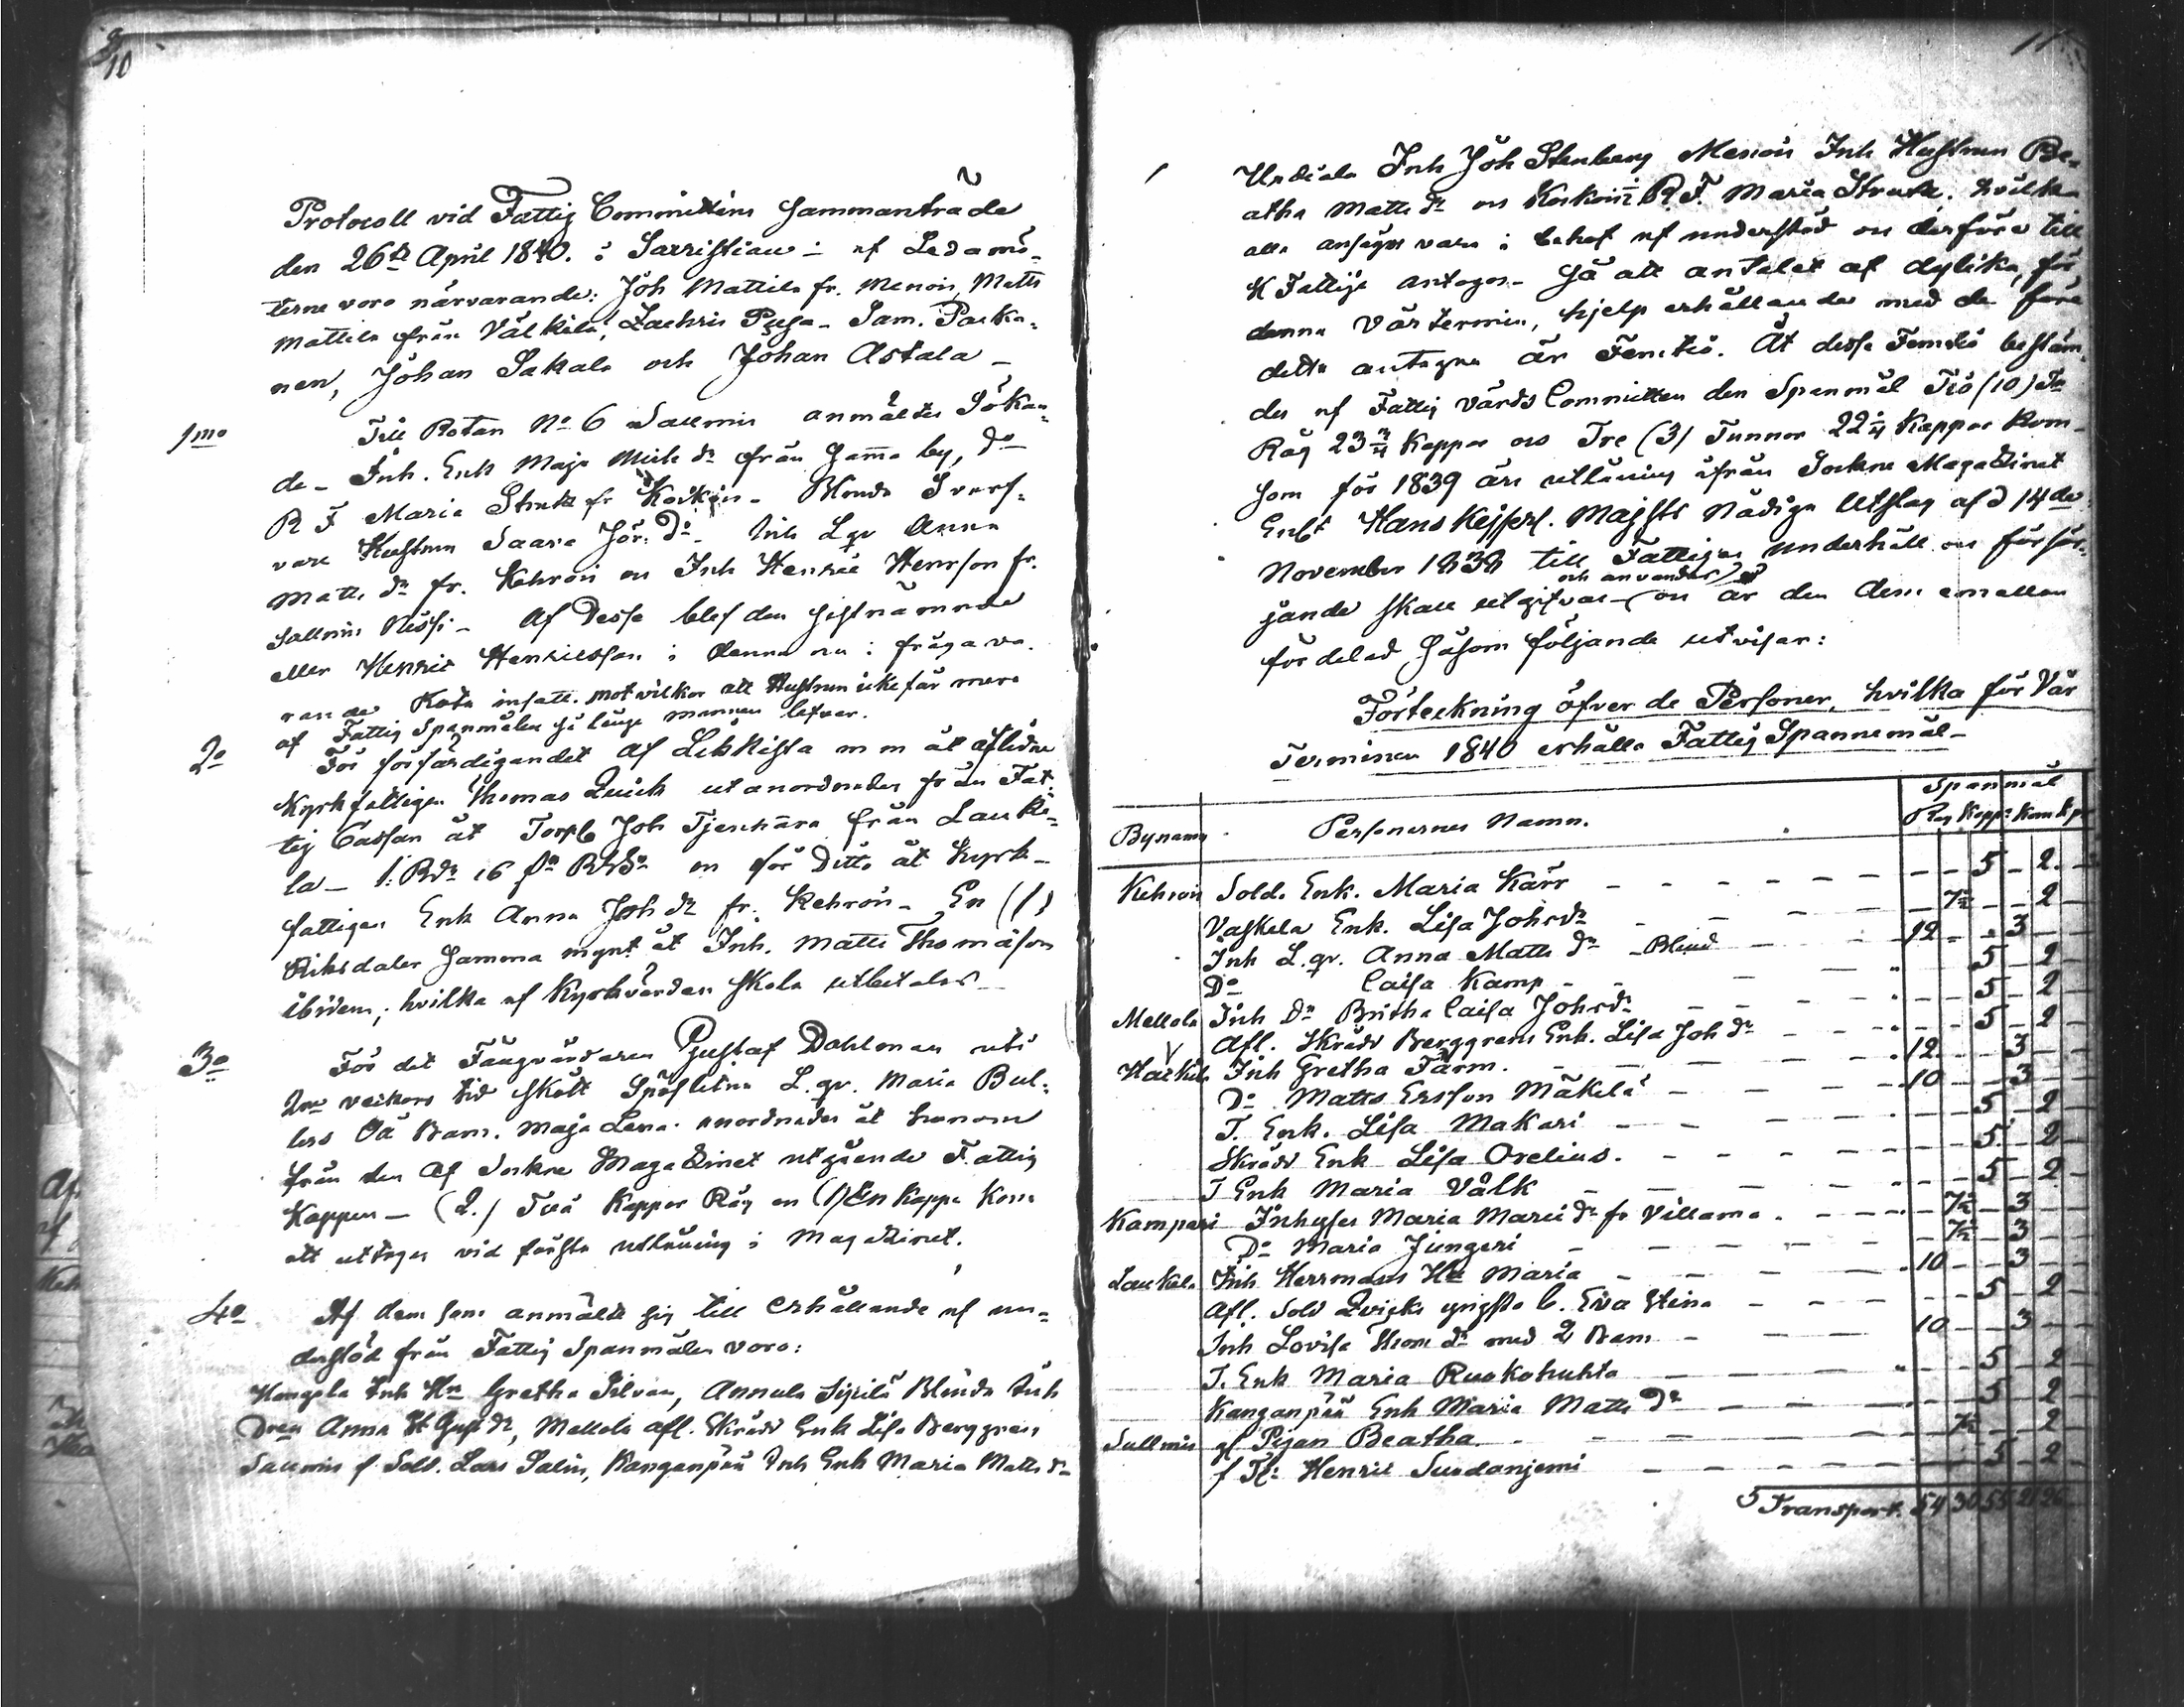 10
Protocoll vid Fattig Committéens sammanträde
den 26de April 1840. i Sacristian – af Ledamö-
terne voro närvarande: Joh Mattila fr. Menois, Matts
Mattila från Välkilä, Zachris – Sam. Paska-
nen, Johan Sakala och Johan Astala –
1mo Till Rotan No 6 Salmis anmältes Sökan-
de – Inh. Enk Maja Mich dr från samma by, Do
R F Maria Strutz fr Koskois – Blinda
vare Hustrun Saara Jör. Dr – Inh L. qv Anna
Matts dr fr. Kehrois och Inh Henric Henrson fr.
Sallmis Nissi – Af Desse blef den sistnämnde
eller Henric Henricsson i denna nu i fråga va-
rande Rota insatt. mot vilkor att Hustrun icke får mera
af Fattig Spanmålen så länge mannen lefver.
2o För förfärdigandet af Likkista m m åt aflidne
Kyrkfattigen Thomas Quick utanordnades från Fat-
tig Cassan åt Torp Joh Tjenhära från Lauke-
la – 1. Rdr 16 och för Ditto åt Kyrk-
fattigen Enk Anna Joh dr fr. Kehrois – En (1)
Riksdaler samma mynt åt Inh. Matts Thomasson
ibidem; hvilka af Kyrkvärden skola utbetalas –
3o För det Fångvårdaren Gustaf Dahlman uti
2ne veckors tid skött L. qv. Maria Bul-
lers Oä Barn. Maja Lena. anordnades åt honom
från den af Sockne Magazinet utgående Fattig
Kappen – (2.) Två Kappar Råg och (1) En Kappe Korn
att uttagas vid första utlåning i Magazinet.
4o Af dem som anmält sig till erhållande af un-
derstöd från Fattig Spanmålen voro:
Kangela Inh Hu Gretha Silvan, Annula Sipilä Blinda Inh
Dren Anna St Gust dr, Mellola afl. Skrädd Enk Lisa Berggren
Sallmis f Sold. Lars Salin, Kanganpää Inh Enk Maria Matts dr
11
Urdiala Inh Joh Stenberg Menois Inh Hustrun Be-
atha Matts dr och Koskois R. F. Maria Strutz. hvilka
alla ansågos vara i behof af understöd och derföre till
K Fattige antogos – Så att antalet af dylika, för
denna Vårtermin, hjelp erhållande med de före
detta antagne är Femtio. Åt desse Femtio bestäm-
des af Fattig vårds Committén den Spanmål Tio (10) Tr
Råg 23 3/4 Kappar och Tre (3) Tunnor 22 1/4 Kappar Korn
som för 1839 års utlåning ifrån Sockne Magazinet
Enligt Hans Kejserl. Majsts Nådiga Utslag af d 14de
November 1838 till Fattigas underhåll och försör-
och användas
jande skall utgifvas och är den dem emellan
fördelad såsom följande utvisar:
Förteckning öfver de Personer, hvilka för Vår
Terminen 1840 erhålla Fattig Spannemål –
Bynamn Personernes Namn. Spannmål
Råg Kapp: Korn Kp
Kehrois Sold. Enk. Maria Kärr – 5 – 2
Vaskela Enk. Lisa Johsdr – 7½ – 2
Inh L. qv. Anna Matts dr – Blind – 12 – 3
Do Caisa Kamp – 5 – 2
Mellola Inh Dr Britha Caisa Johsdr – 5 – 2
Afl. Skrädd Berggrens Enk. Lisa Joh dr – 5 – 2
Inh Gretha Färm. – 12 – 3
Do Matts Ersson Mäkelä – 10 – 3
T. Enk. Lisa Makari – 5 – 2
Skrädd Enk Lisa Orelius. – 5 – 2
T Enk Maria Välk – 5 – 2
Kampari Inhyses Maria Matts dr fr Villama. – 7½ – 3
Do Maria Jungeri – 7½ – 3
Laukela Inh Herrmans Hu Maria – 10 – 3
Afl. Sold Qvicks yngsta b. Eva Stina – 5 – 2
Inh Lovisa Thom dr med 2 Barn – 10 – 3
T. Enk Maria Ruokohuhta – 5 – 2
Kanganpää Enk Maria Matts Dr – 5 – 2
Sallmis gl Pigan Beatha – 7½ – 2
f Tl: Henric Suodanjemi – 5 – 2
Transport. 54 30 55 21 26